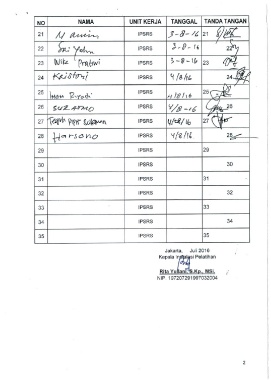 NO NAMA UNIT KERJA TANGGAL TANDA TANGAN
21 IPSRS 3-8-16 21
22 Sri IPSRS 3-8-16 22
23 Wike Pratiwi IPSRS 3-8-16 23
24 Kristoni IPSRS 4/8/16 24
25 Iman IPSRS 4/8/16 25
26 IPSRS 4/8-16 26
27 Teguh IPSRS 4/08/16 27
28 Harsono IPSRS 4/8/16 28
29 IPSRS 29
30 IPSRS 30
31 IPSRS 31
32 IPSRS 32
33 IPSRS 33
34 IPSRS 34
35 IPSRS 35
Jakarta, Juli 2016
Kepala Instalasi Pelatihan
Rita Yuliani, S.Kp., MSi.
NIP. 197207291997032004
2